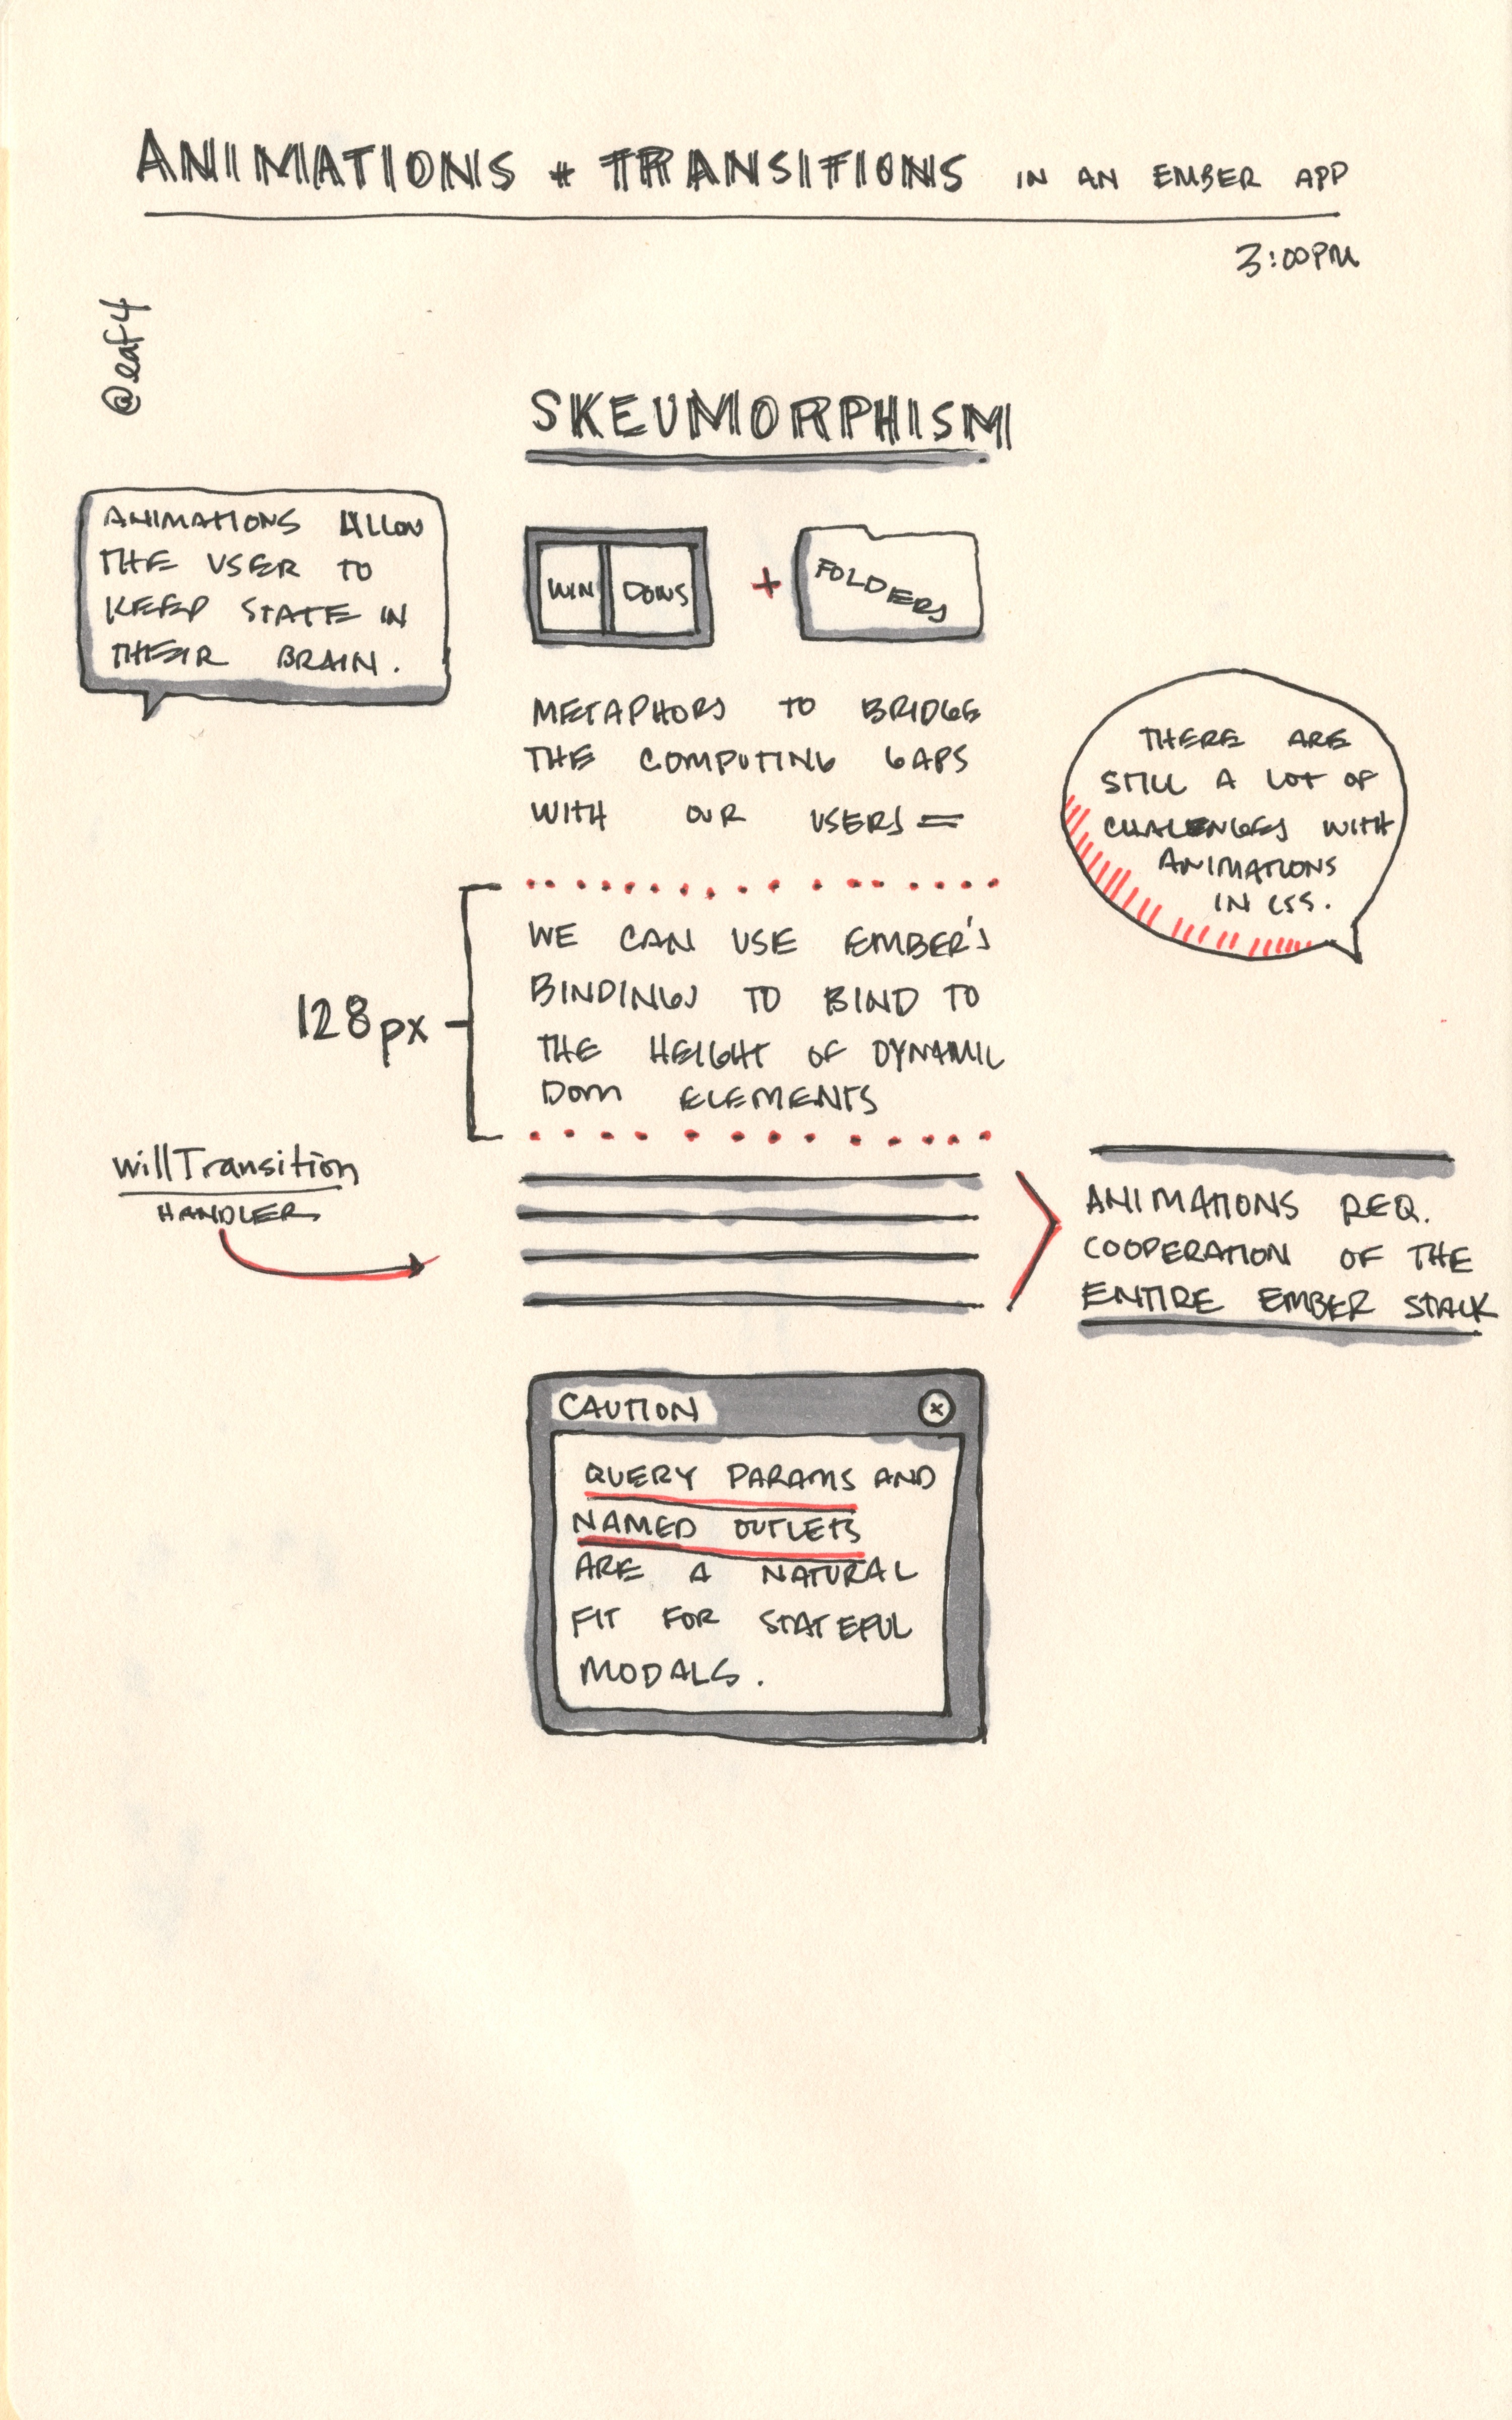 ANIMATIONS + TRANSITIONS IN AN EMBER APP
3:00PM
@eaf4
SKEUMORPHISM
ANIMATIONS ALLOW
THE USER TO
KEEP STATE IN
THEIR BRAIN.
WIN DOWS + FOLDERS
METAPHORS TO BRIDGE
THE COMPUTING GAPS
WITH OUR USERS =
THERE ARE
STILL A LOT OF
CHALENGES WITH
ANIMATIONS
IN CSS.
128px
WE CAN USE EMBER'S
BINDINGS TO BIND TO
THE HEIGHT OF DYNAMIC
DOM ELEMENTS
willTransition
HANDLER
ANIMATIONS REQ.
COOPERATION OF THE
ENTIRE EMBER STACK
CAUTION
QUERY PARAMS AND
NAMED OUTLETS
ARE A NATURAL
FIT FOR STATEFUL
MODALS.